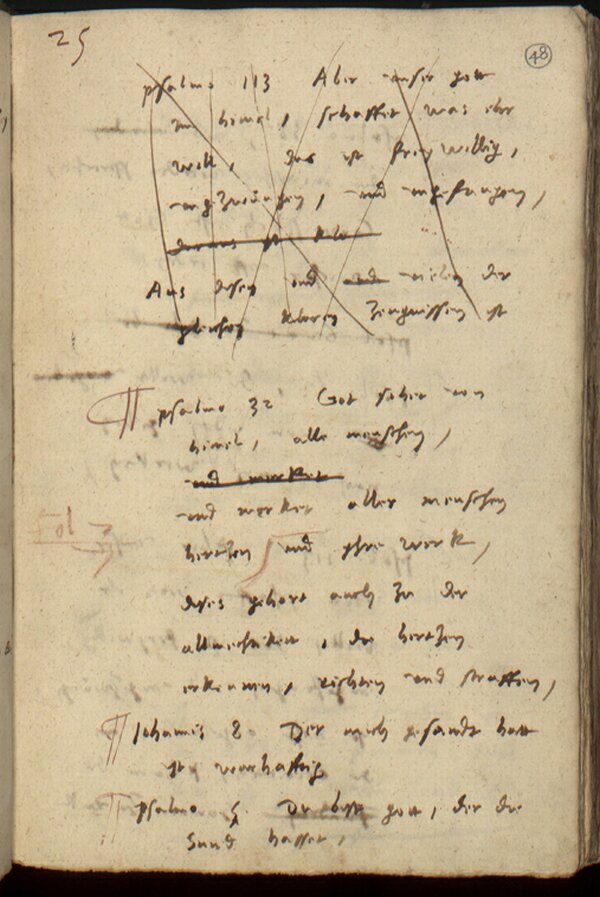 25
48
psalmo 113 Aber unser gott
im himel, schaffet was ehr
will, das ist frey willig,
ungezwungen, und ungefangen,
daraus ist klar
Aus disen und und vielen der
gleichen klaren zeugnissen ist
psalmo 32 Got sihet von
himel, alle menschen,
und merket
und merket aller menschen
hertzen und yhre werk,
dises gehort auch zu der
allmechtikeit, die hertzen
erkennen, richten und straffen,
Johannis 8 Der mich gesandt hatt
ist warhafftig
psalmo 5 Du bist gott, der die
sund hasset,